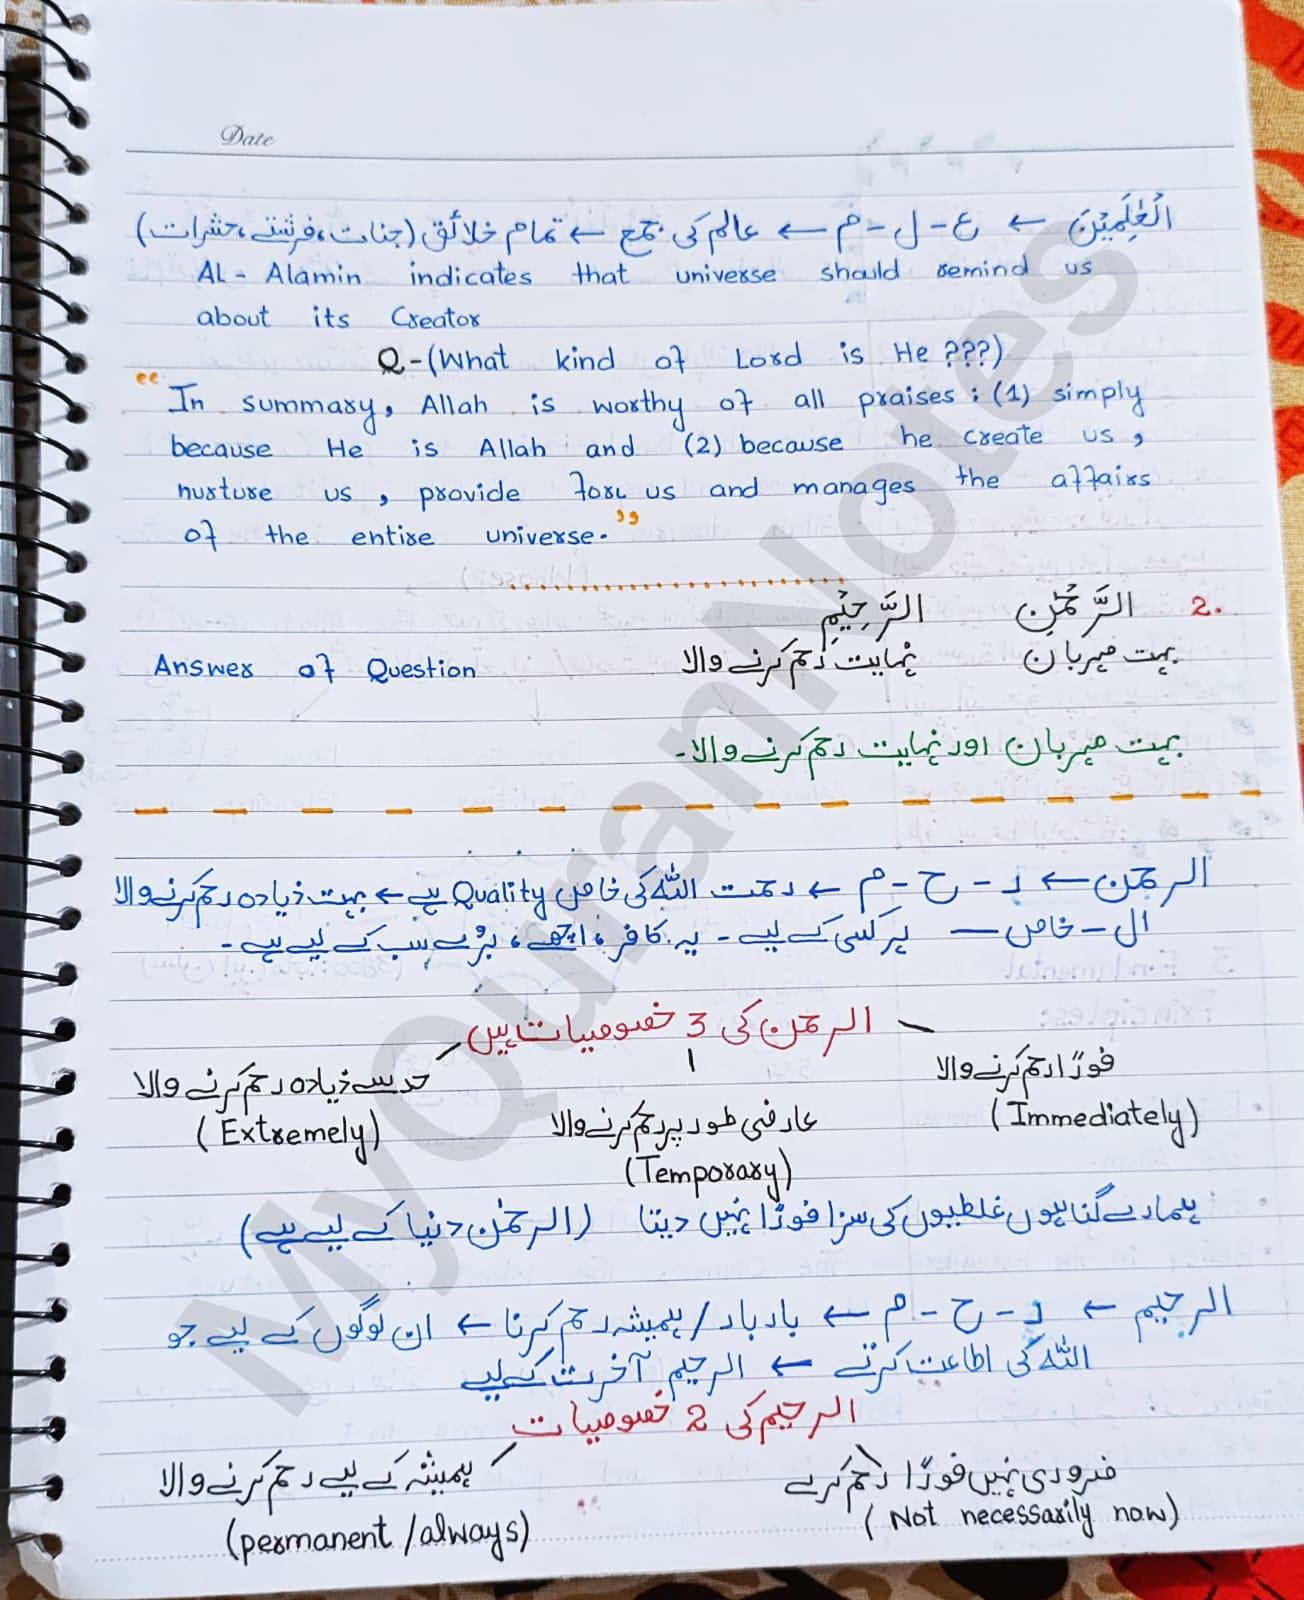 Date
الْعٰلَمِيْنَ ← ع - ل - م ← عالم کی جمع ← تمام خلائق (جنات، فرشتے، حشرات)
AL - Alamin indicates that universe should remind us
about its Creator
Q - (What kind of Lord is He ???)
“In summary, Allah is worthy of all praises : (1) simply
because He is Allah and (2) because he create us,
nurture us, provide for us and manages the affairs
of the entire universe.”
2. الرَّحْمٰنِ الرَّحِيْمِ
بہت مہربان نہایت رحم کرنے والا Answer of Question
بہت مہربان اور نہایت رحم کرنے والا۔
الرحمن ← ر - ح - م ← رحمت اللہ کی خاص Quality ہے ← بہت زیادہ رحم کرنے والا
ال - خاص — ہر کسی کے لیے - یہ کافر، اچھے، بڑے سب کے لیے ہے -
الرحمن کی 3 خصوصیات ہیں
فورًا رحم کرنے والا حد سے زیادہ رحم کرنے والا
(Immediately) عارضی طور پر رحم کرنے والا (Extremely)
(Temporary)
ہمارے گناہوں غلطیوں کی سزا فورًا نہیں دیتا (الرحمٰن دنیا کے لیے ہے)
الرحیم ← ر - ح - م ← بار بار / ہمیشہ رحم کرنا ← ان لوگوں کے لیے جو
اللہ کی اطاعت کرتے ← الرحیم آخرت کے لیے
الرحیم کی 2 خصوصیات
ضروری نہیں فورًا رحم کرے ہمیشہ کے لیے رحم کرنے والا
(Not necessarily now) (permanent / always)
MyQuranNotes